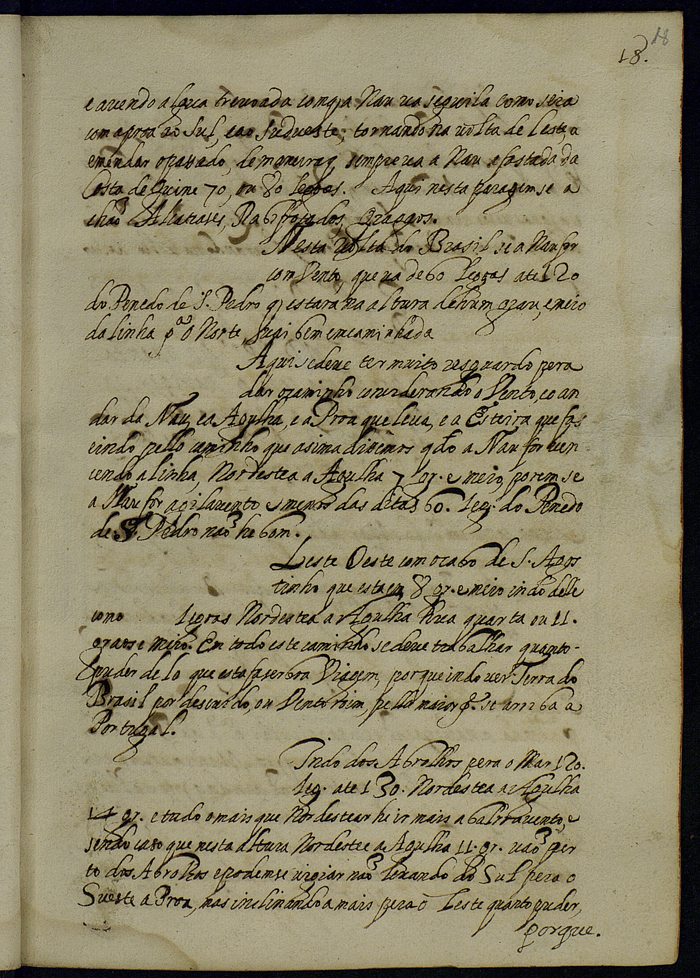 18
18.
e avendo algũa trevoada compa Nau va seguila como seia
com a proa ao Sul, e ao sudueste, tornando na volta de Leste, a
emendar o passado, de maneira q sempre va a Nau afastada da
Costa de Guine 70, ou 80 legoas. Aqui nesta paragem se a
chaõ Alcatrases, Rabiforcados, Gragaos.
Nesta volta do Brasil se a Nau for
com Vento, que va de 60 legoas ate 120
do Penedo de S. Pedro q estara na altura de hum grau, e meio
da linha pª o Norte, vai bem encaminhada
Aqui se deve ter muito resguardo pera
dar o caminho considerando o Vento, e o an
dar da Nau, e a Agulha, e a Proa que leva, e a Esteira que fas
e indo pello caminho que asima disemos qdo a Nau for cor
rendo a linha, Nordestea a Agulha 7 gr. e meio, porem se
a Nau for a gilavento e menos das ditas 60. leg. do Penedo
de S. Pedro naõ he bom.
Leste Oeste com o cabo de S. Agos
tinho que esta em 8 gr. e meio indo delle
como legoas Nordestea a Agulha hũa quarta ou 11.
graos e meio. Em todo este caminho se deve trabalhar quanto
puder de lo que esta faser boa Viagem, porque indo ver Terra do
Brasil por descuido, ou Vento roim, pella maior pte se arriba a
Portugal.
Indo dos Abrolhos pera o Mar 120.
leg. ate 130. Nordestea a Agulha
14 gr. e tudo o mais que Nordestear he ir mais a balravento, e
sendo caso que nesta altura Nordestee a Agulha 11. gr. vaõ per
to dos Abrolhos e podemse vigiar naõ levando do Sul pera o
Sueste a Proa, mas inclinando a mais pera o Leste quanto puder,
porque.